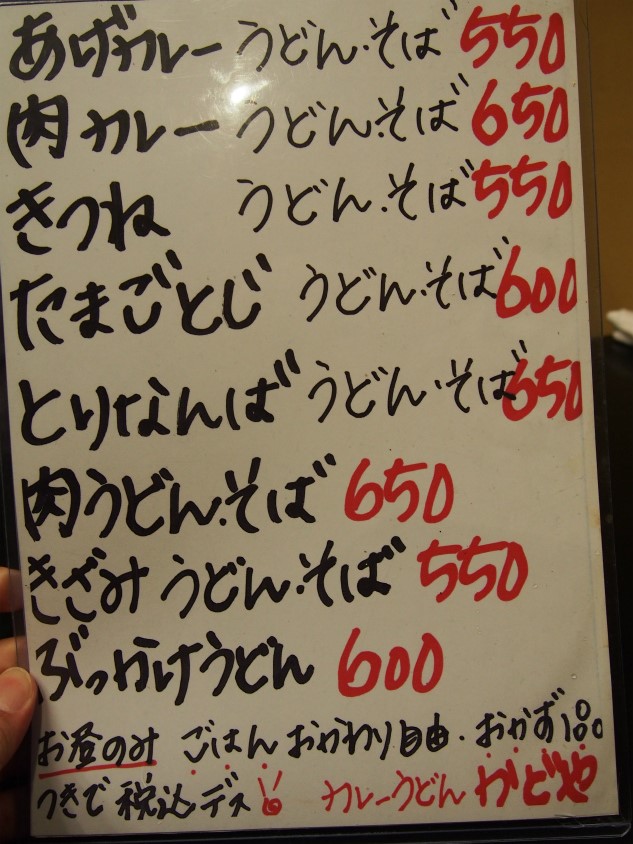 あげカレーうどん・そば 550
肉カレーうどん・そば 650
きつね うどん・そば 550
たまごとじ うどん・そば 600
とりなんば うどん・そば 650
肉うどん・そば 650
きざみうどん・そば 550
ぶっかけうどん 600
お昼のみ ごはんおかわり自由・おかず1品
つきで税込デス!! カレーうどん かどや